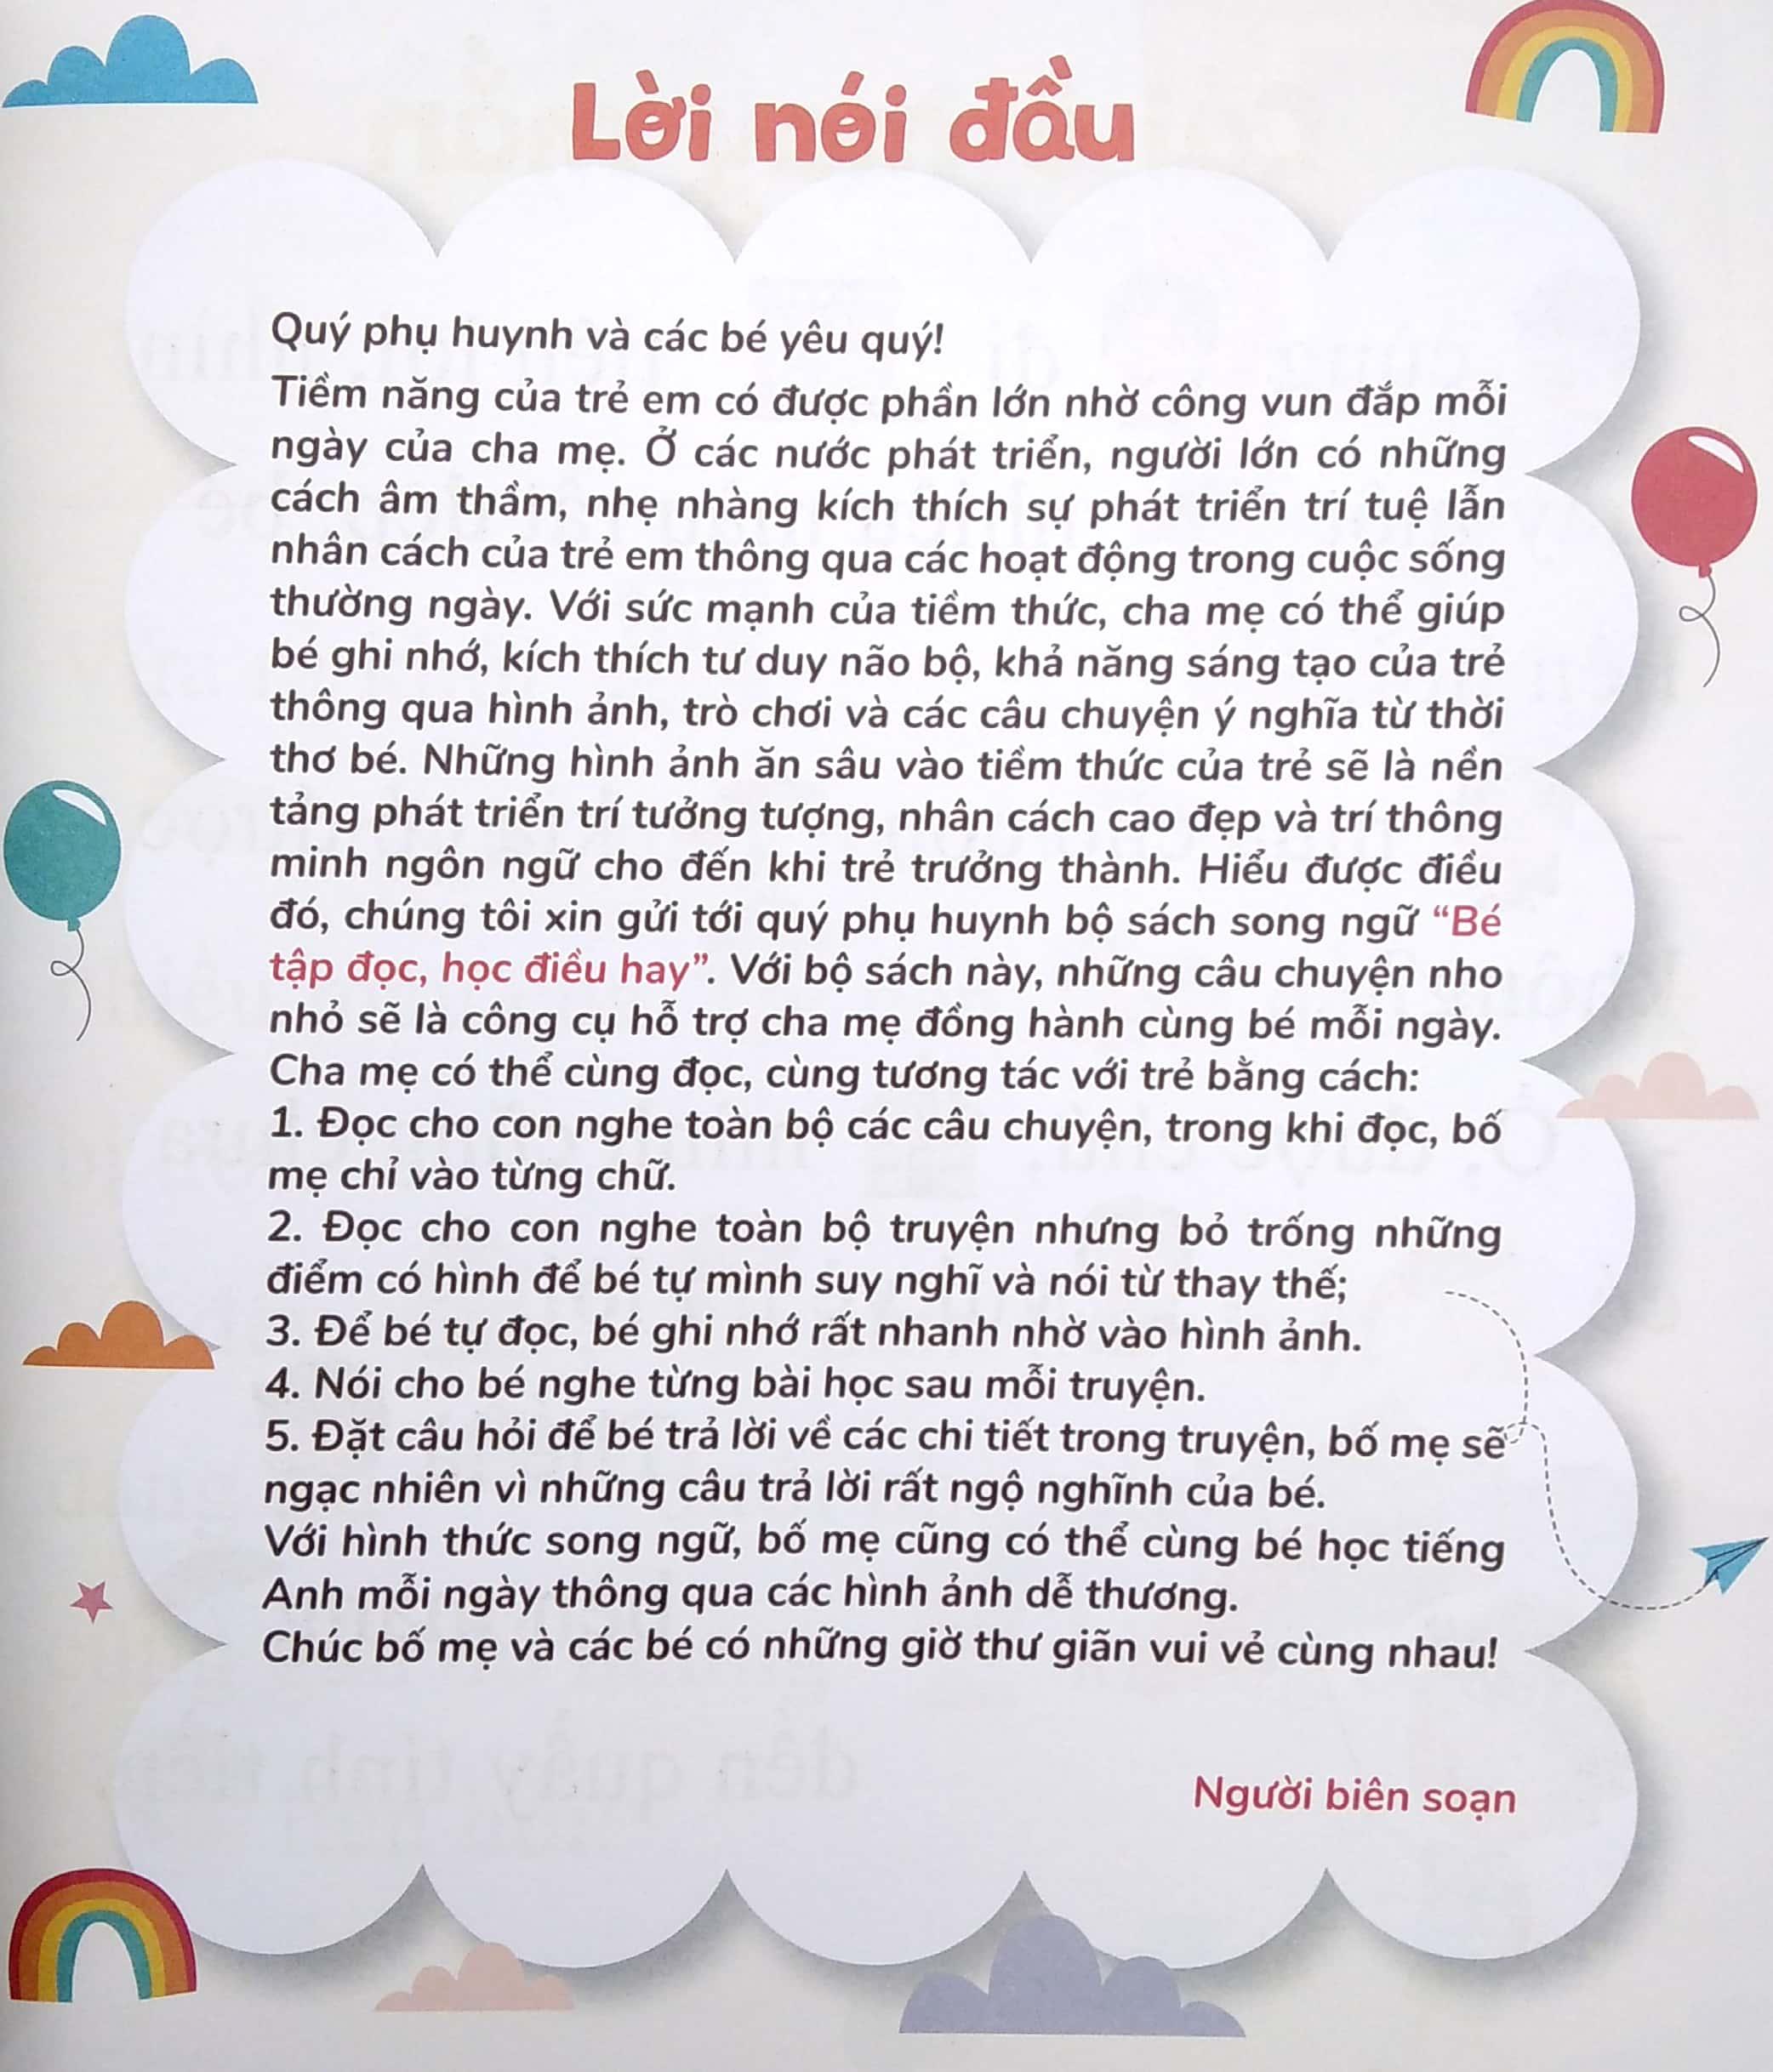 Lời nói đầu
Quý phụ huynh và các bé yêu quý!
Tiềm năng của trẻ em có được phần lớn nhờ công vun đắp mỗi
ngày của cha mẹ. Ở các nước phát triển, người lớn có những
cách âm thầm, nhẹ nhàng kích thích sự phát triển trí tuệ lẫn
nhân cách của trẻ em thông qua các hoạt động trong cuộc sống
thường ngày. Với sức mạnh của tiềm thức, cha mẹ có thể giúp
bé ghi nhớ, kích thích tư duy não bộ, khả năng sáng tạo của trẻ
thông qua hình ảnh, trò chơi và các câu chuyện ý nghĩa từ thời
thơ bé. Những hình ảnh ăn sâu vào tiềm thức của trẻ sẽ là nền
tảng phát triển trí tưởng tượng, nhân cách cao đẹp và trí thông
minh ngôn ngữ cho đến khi trẻ trưởng thành. Hiểu được điều
đó, chúng tôi xin gửi tới quý phụ huynh bộ sách song ngữ “Bé
tập đọc, học điều hay”. Với bộ sách này, những câu chuyện nho
nhỏ sẽ là công cụ hỗ trợ cha mẹ đồng hành cùng bé mỗi ngày.
Cha mẹ có thể cùng đọc, cùng tương tác với trẻ bằng cách:
1. Đọc cho con nghe toàn bộ các câu chuyện, trong khi đọc, bố
mẹ chỉ vào từng chữ.
2. Đọc cho con nghe toàn bộ truyện nhưng bỏ trống những
điểm có hình để bé tự mình suy nghĩ và nói từ thay thế;
3. Để bé tự đọc, bé ghi nhớ rất nhanh nhờ vào hình ảnh.
4. Nói cho bé nghe từng bài học sau mỗi truyện.
5. Đặt câu hỏi để bé trả lời về các chi tiết trong truyện, bố mẹ sẽ
ngạc nhiên vì những câu trả lời rất ngộ nghĩnh của bé.
Với hình thức song ngữ, bố mẹ cũng có thể cùng bé học tiếng
Anh mỗi ngày thông qua các hình ảnh dễ thương.
Chúc bố mẹ và các bé có những giờ thư giãn vui vẻ cùng nhau!
Người biên soạn